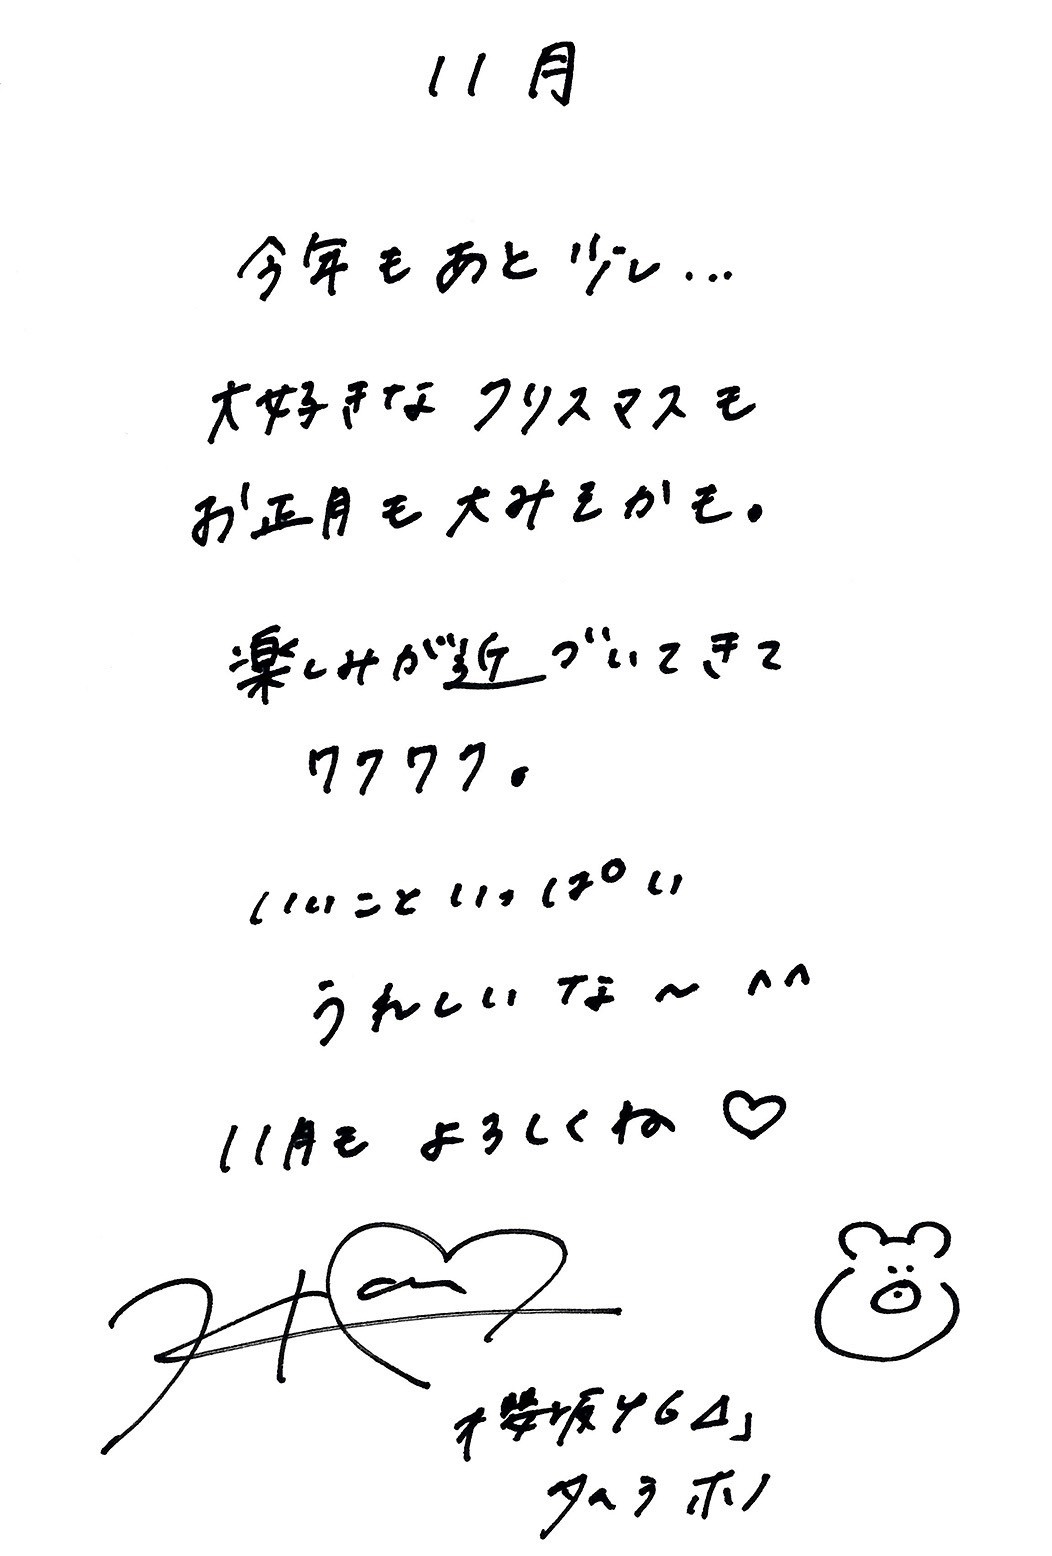 11月
今年もあと少し...
大好きなクリスマスも
お正月も大みそかも。
楽しみが近づいてきて
ワクワク。
いいこといっぱい
うれしいな〜^^
11月もよろしくね♡
櫻坂46